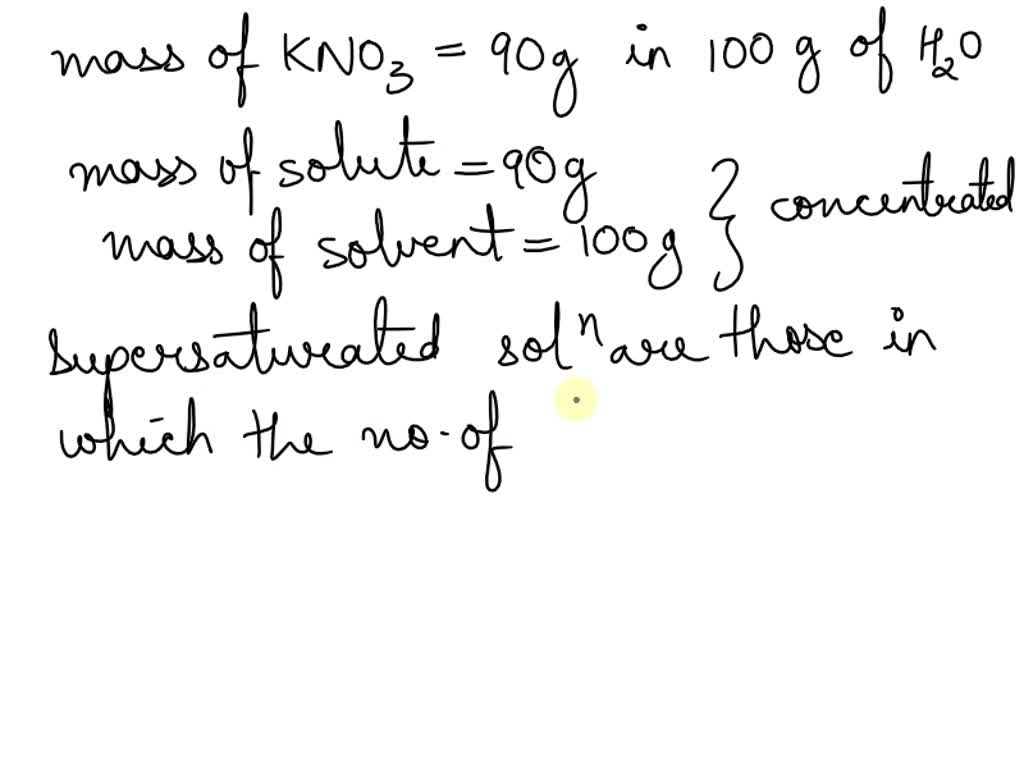 mass of KNO₃ = 90g in 100 g of H₂O
mass of solute = 90g
mass of solvent = 100g } concentrated
supersaturated solⁿ are those in
which the no. of